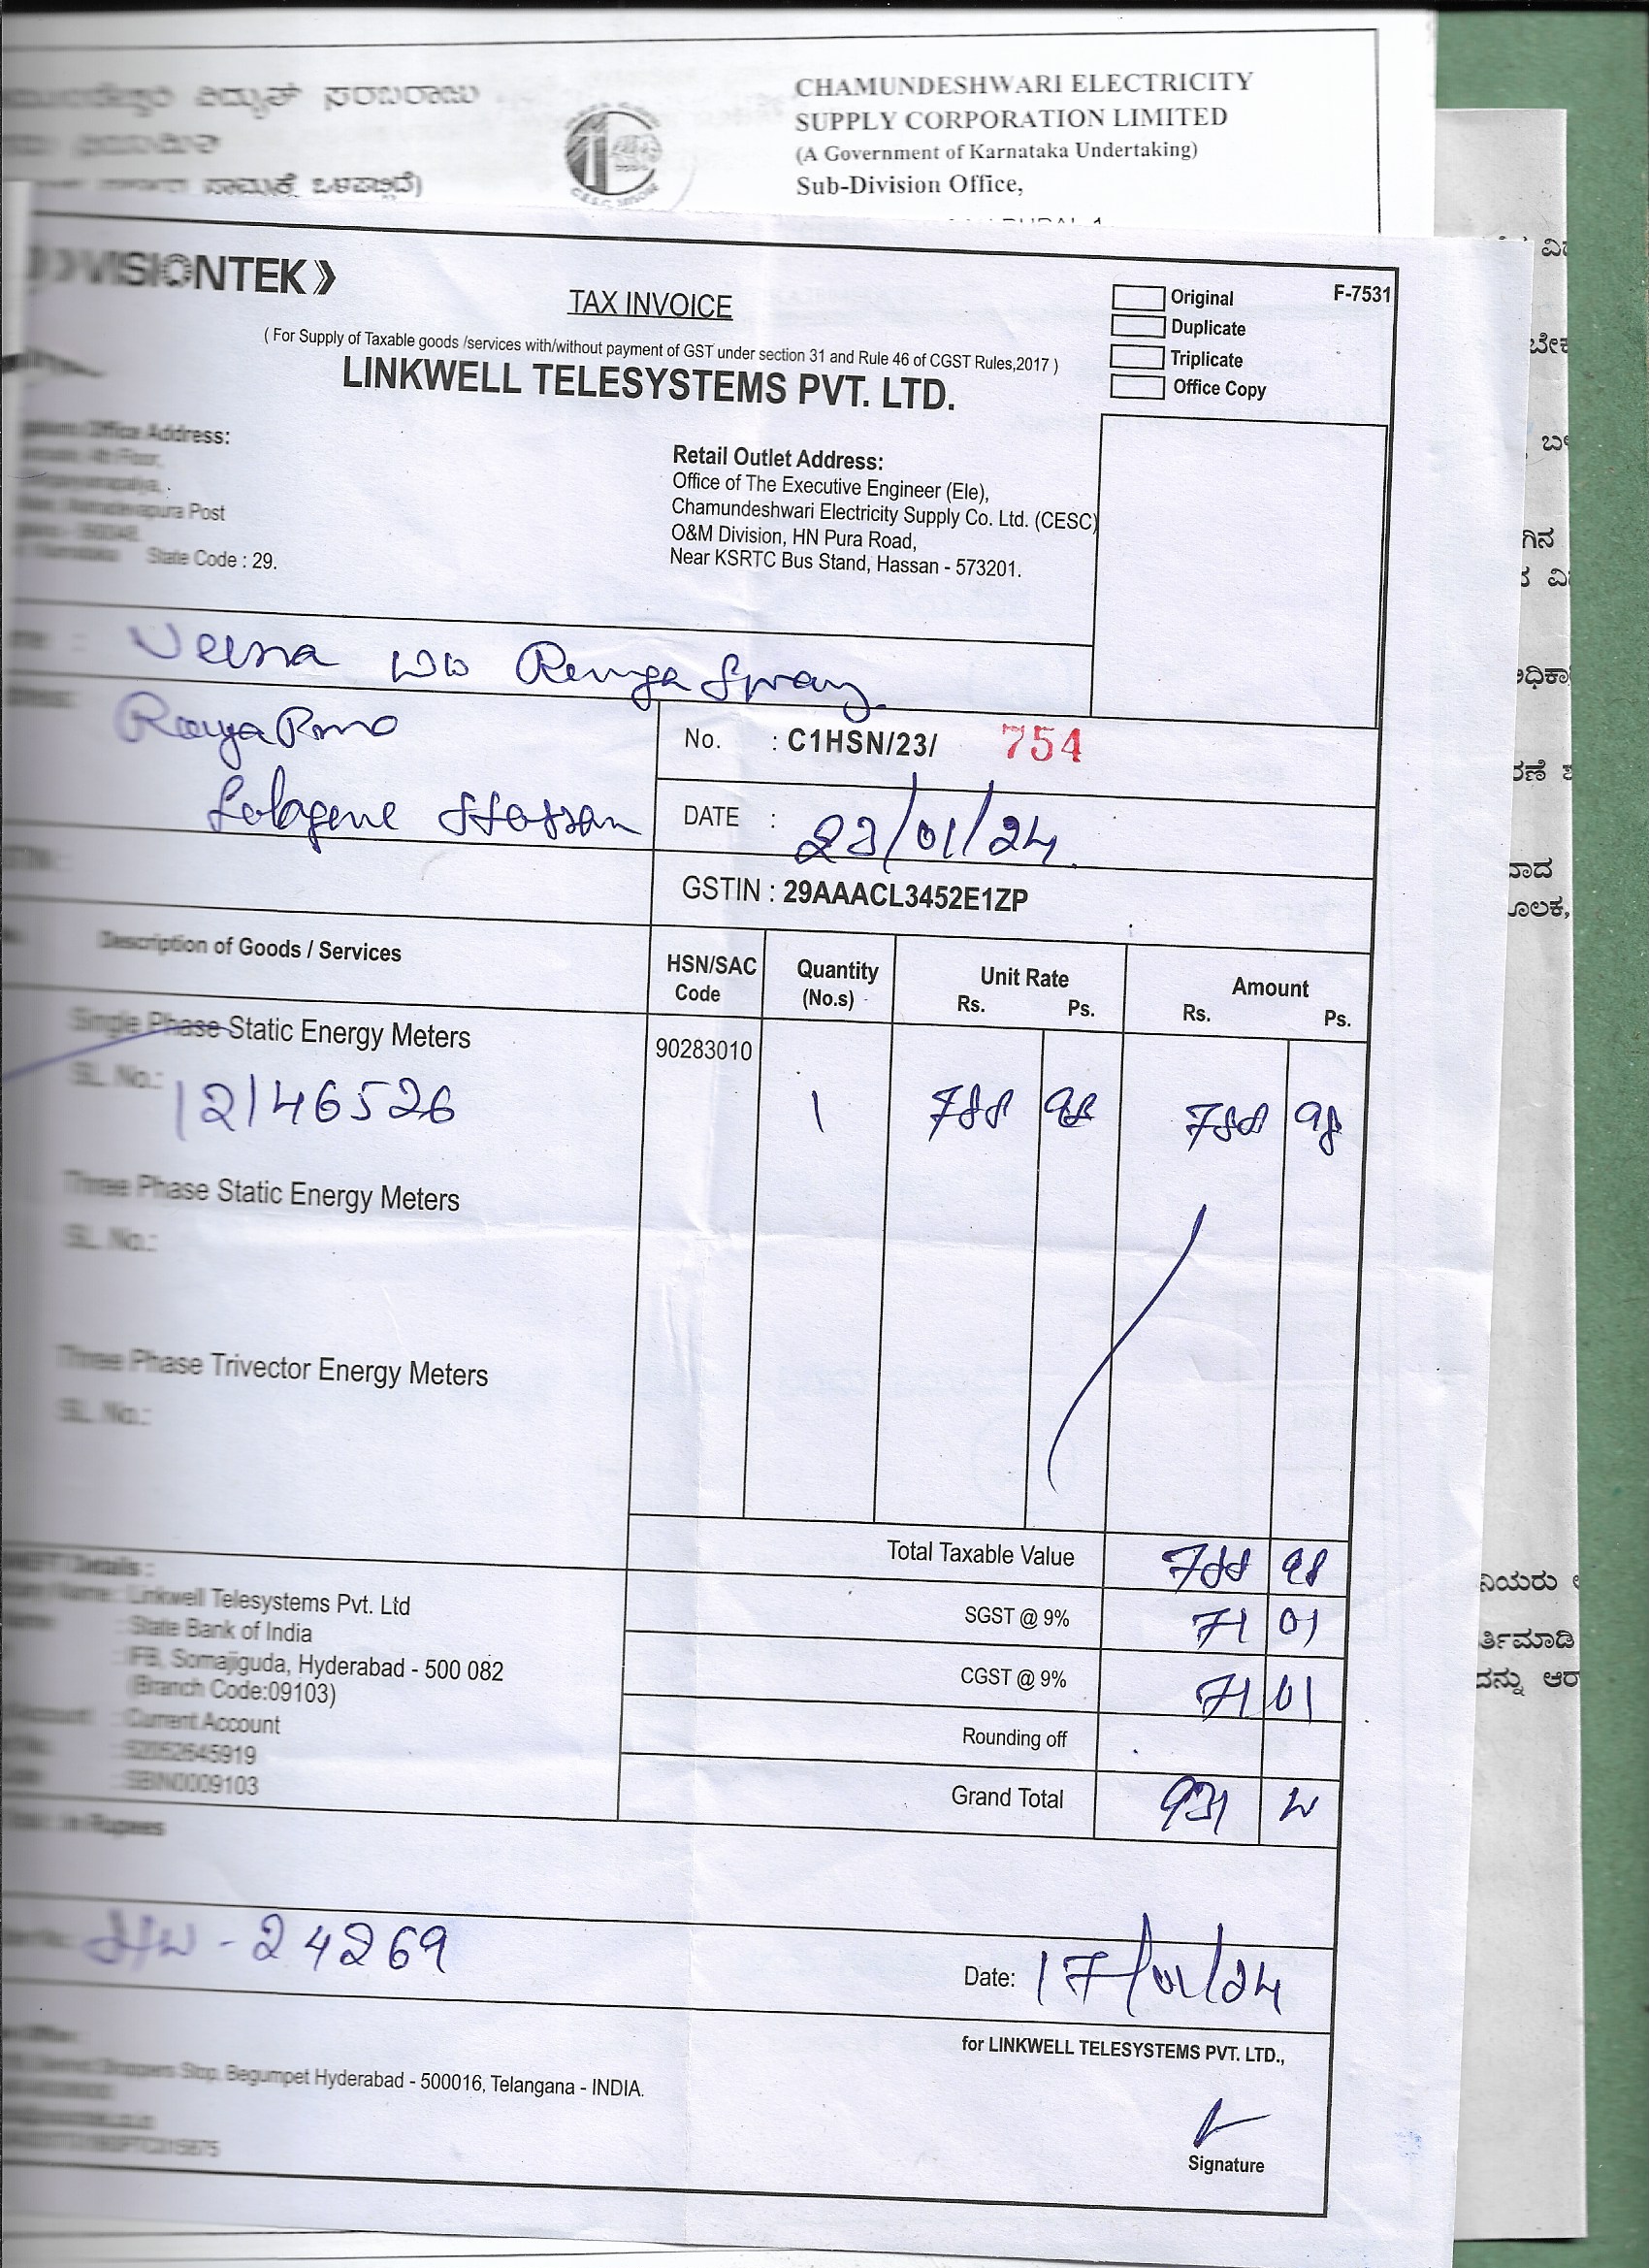 ವಿದ್ಯುತ್ ಸರಬರಾಜು
CHAMUNDESHWARI ELECTRICITY
SUPPLY CORPORATION LIMITED
(A Government of Karnataka Undertaking)
Sub-Division Office,
VISIONTEK
TAX INVOICE
Original
F-7531
Duplicate
Triplicate
Office Copy
( For Supply of Taxable goods /services with/without payment of GST under section 31 and Rule 46 of CGST Rules,2017 )
LINKWELL TELESYSTEMS PVT. LTD.
Office Address:
Post
State Code : 29.
Retail Outlet Address:
Office of The Executive Engineer (Ele),
Chamundeshwari Electricity Supply Co. Ltd. (CESC)
O&M Division, HN Pura Road,
Near KSRTC Bus Stand, Hassan - 573201.
Veena
Hassan
No. : C1HSN/23/ 754
DATE : 23/01/24
GSTIN : 29AAACL3452E1ZP
Description of Goods / Services
HSN/SAC Code
Quantity (No.s)
Unit Rate Rs. Ps.
Amount Rs. Ps.
Single Phase Static Energy Meters
90283010
SL. No.: 12146526
1 788 98 788 98
Three Phase Static Energy Meters
SL. No.:
Three Phase Trivector Energy Meters
SL. No.:
Total Taxable Value 788 98
SGST @ 9% 71 01
CGST @ 9% 71 01
Rounding off
Grand Total 931
Details :
Name : Linkwell Telesystems Pvt. Ltd
: State Bank of India
: IFB, Somajiguda, Hyderabad - 500 082
(Branch Code:09103)
: Current Account
: 62052645919
: SBIN0009103
in Rupees
- 24269
Date: 17/01/24
for LINKWELL TELESYSTEMS PVT. LTD.,
Shoppers Stop, Begumpet Hyderabad - 500016, Telangana - INDIA.
Signature